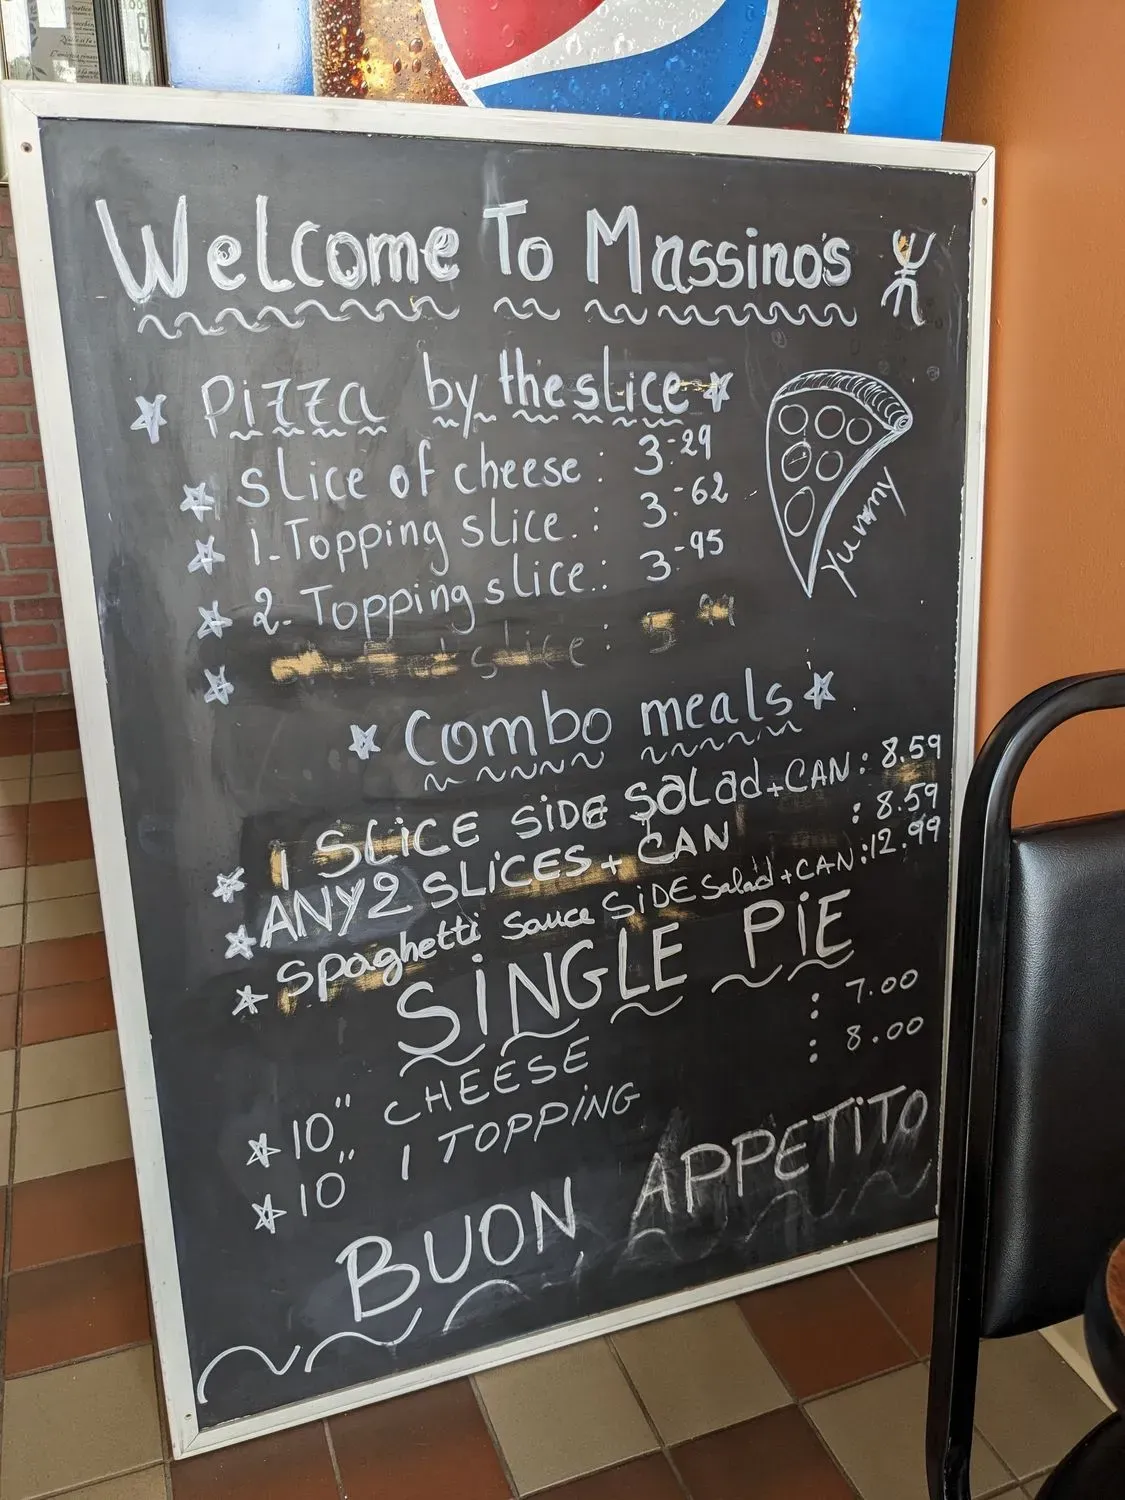 Welcome To Massino's
Pizza by the slice
slice of cheese : 3.29
1-Topping slice : 3.62
2-Topping slice : 3.95
slice :
Yummy
Combo meals
1 SLiCE SiDE Salad + CAN : 8.59
ANY 2 SLiCES + CAN : 8.59
Spaghetti Sauce SiDE Salad + CAN : 12.99
SiNGLE PiE
10" CHEESE : 7.00
10" 1 TOPPiNG : 8.00
BUON APPETiTO